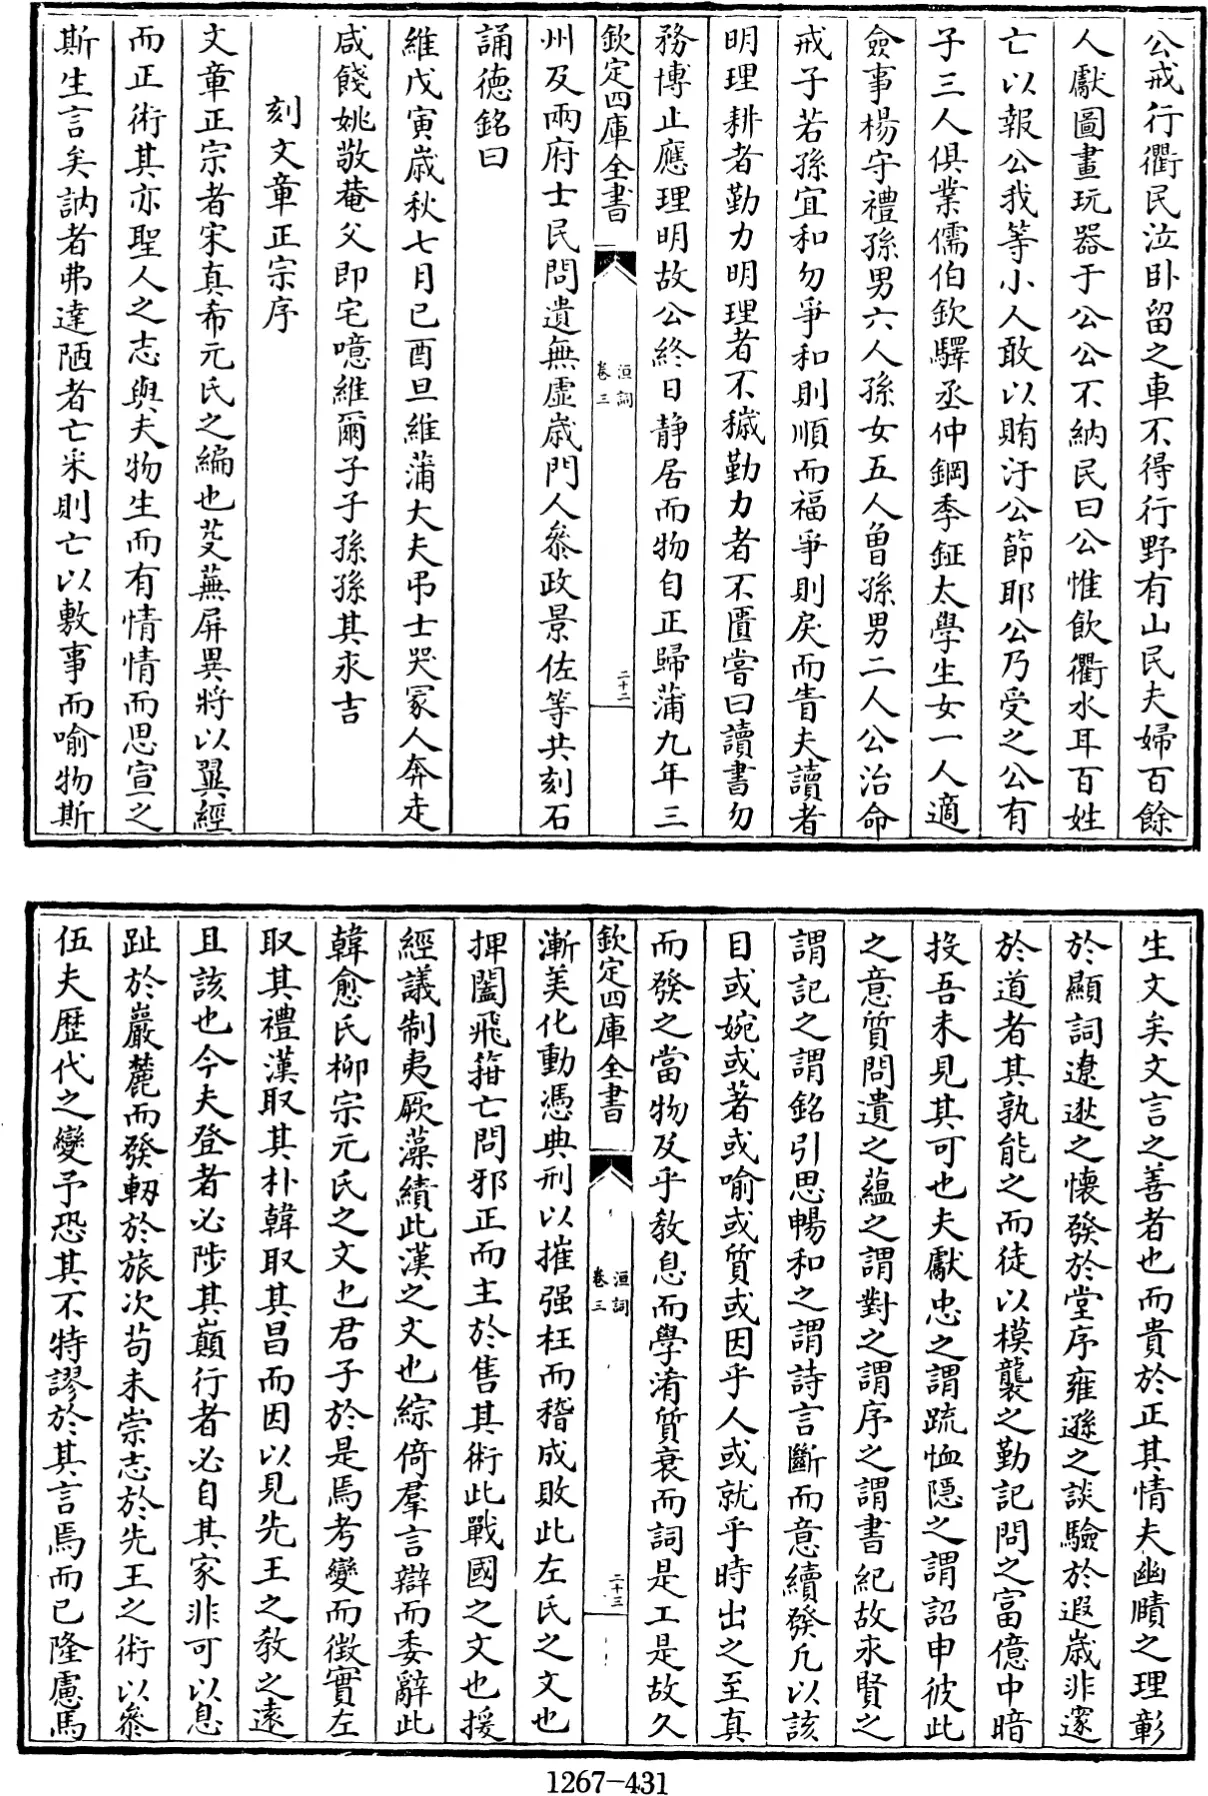 公戒行衢民泣卧留之車不得行野有山民夫婦百餘
人獻圖畫玩器于公公不納民曰公惟飲衢水耳百姓
亡以報公我等小人敢以賄汙公節耶公乃受之公有
子三人俱業儒伯欽驛丞仲鋼季鉦太學生女一人適
僉事楊守禮孫男六人孫女五人曾孫男二人公治命
戒子若孫宜和勿爭和則順而福爭則戾而眚夫讀者
明理耕者勤力明理者不穢勤力者不匱嘗曰讀書勿
務博止應理明故公終日静居而物自正歸蒲九年三
欽定四庫全書
洹詞
卷三
二十二
州及兩府士民問遺無虛歳門人叅政景佐等共刻石
誦德銘曰
維戊寅歳秋七月已酉旦維蒲大夫弔士哭冢人奔走
咸餞姚敬菴父即宅噫維爾子子孫孫其求吉
刻文章正宗序
文章正宗者宋真希元氏之編也芟蕪屏異將以翼經
而正術其亦聖人之志與夫物生而有情情而思宣之
斯生言矣訥者弗達陋者亡采則亡以敷事而喻物斯
生文矣文言之善者也而貴於正其情夫幽賾之理彰
於顯詞遼逖之懷發於堂序雍遜之談驗於遐歳非邃
於道者其孰能之而徒以模襲之勤記問之富億中暗
投吾未見其可也夫獻忠之謂疏恤隠之謂詔申彼此
之意質問遺之蘊之謂對之謂序之謂書紀故求賢之
謂記之謂銘引思暢和之謂詩言斷而意續發凡以該
目或婉或著或喻或質或因乎人或就乎時出之至真
而發之當物及乎教息而學淆質衰而詞是工是故久
欽定四庫全書
洹詞
卷三
二十三
漸美化動憑典刑以摧强枉而稽成敗此左氏之文也
捭闔飛箝亡問邪正而主於售其術此戰國之文也援
經議制夷厥藻繢此漢之文也綜倚羣言辯而委辭此
韓愈氏柳宗元氏之文也君子於是焉考變而徴實左
取其禮漢取其朴韓取其昌而因以見先王之教之遠
且該也今夫登者必陟其巔行者必自其家非可以息
趾於巖麓而發軔於旅次苟未崇志於先王之術以叅
伍夫歴代之變予恐其不特謬於其言焉而已隆慮馬
1267-431